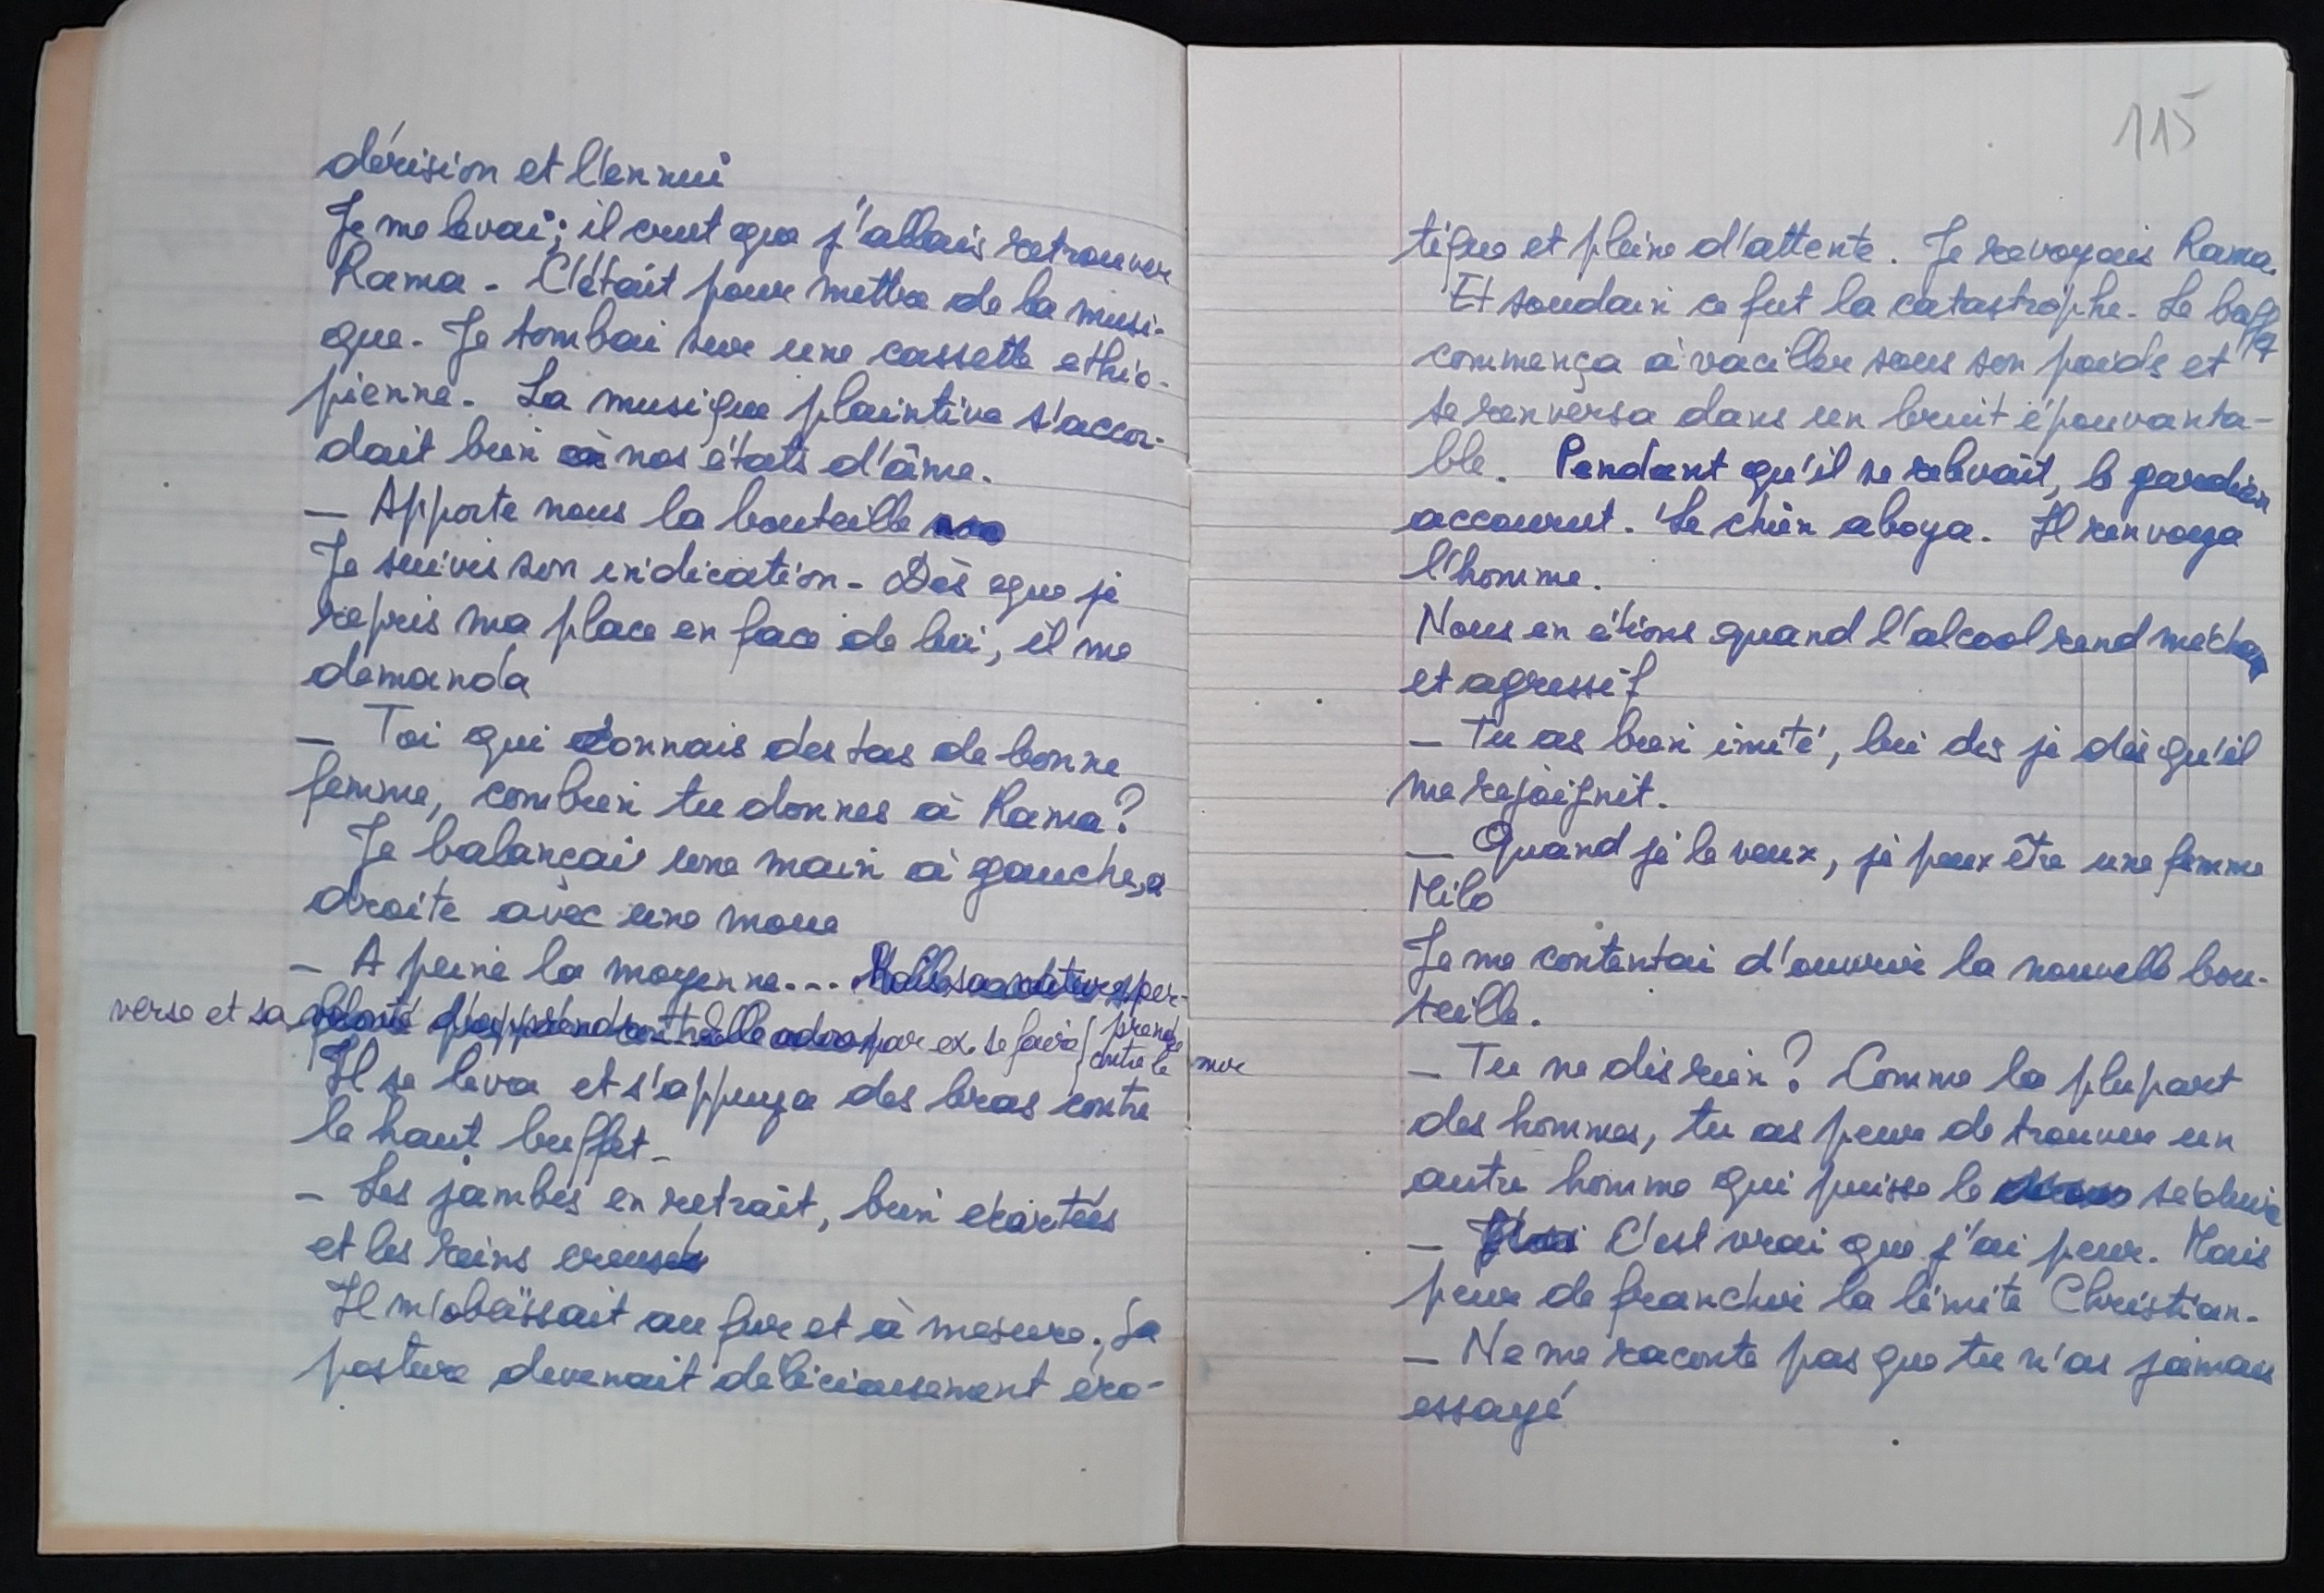 dérision et l'ennui
Je me levai ; il crut que j'allais retrouver
Rama - C'était pour mettre de la musi-
que - Je tombai sur une cassette ethio-
pienne - La musique plaintive s'accor-
dait bien à nos états d'âme.
— Apporte nous la bouteille
Je suivis son indication - Dès que je
repris ma place en face de lui, il me
demanda
— Toi qui connais des tas de bonne
femme, combien tu donnes à Rama ?
Je balançais une main à gauche, a
droite avec une moue
— A peine la moyenne... per-
verse et sa par ex. se faire prendre
contre le mur
Il se leva et s'appuya des bras contre
le haut buffet -
— Les jambes en retrait, bien écartées
et les reins creusés
Il m'obéissait au fur et à mesure. Sa
posture devenait délicieusement éro-
115
tique et pleine d'attente. Je revoyais Rama.
Et soudain ce fut la catastrophe - Le buffet
commença à vaciller sous son poids et
se renversa dans un bruit épouvanta-
ble. Pendant qu'il se relevait, le gardien
accourut. Le chien aboya. Il renvoya
l'homme.
Nous en étions quand l'alcool rend méchant
et agressif
— Tu as bien imité, lui dis je dès qu'il
me rejoignit.
— Quand je le veux, je peux être une femme
Milo
Je me contentai d'ouvrir la nouvelle bou-
teille.
— Tu ne dis rien ? Comme la plupart
des hommes, tu as peur de trouver un
autre homme qui puisse le séduire
— C'est vrai que j'ai peur. Mais
peur de franchir la limite Christian -
— Ne me raconte pas que tu n'as jamais
essayé